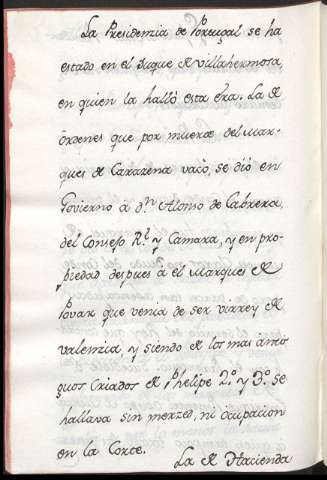 La Presidenzia de Portugal se ha
estado en el Duque de Villahermosa,
en quien la halló esta era. La de
Ordenes que por muerte del Mar-
ques de Carazena vacò, se diò en
Govierno à dn Alonso de Cabrera,
del Consejo Rl y Camara, y en pro-
piedad despues à el Marques de
Povar que venia de ser virrey de
Valenzia, y siendo de los mas anti
guos Criados de Phelipe 2º y 3º se
hallava sin merzed, ni ocupacion
en la Corte.
La de Hacienda